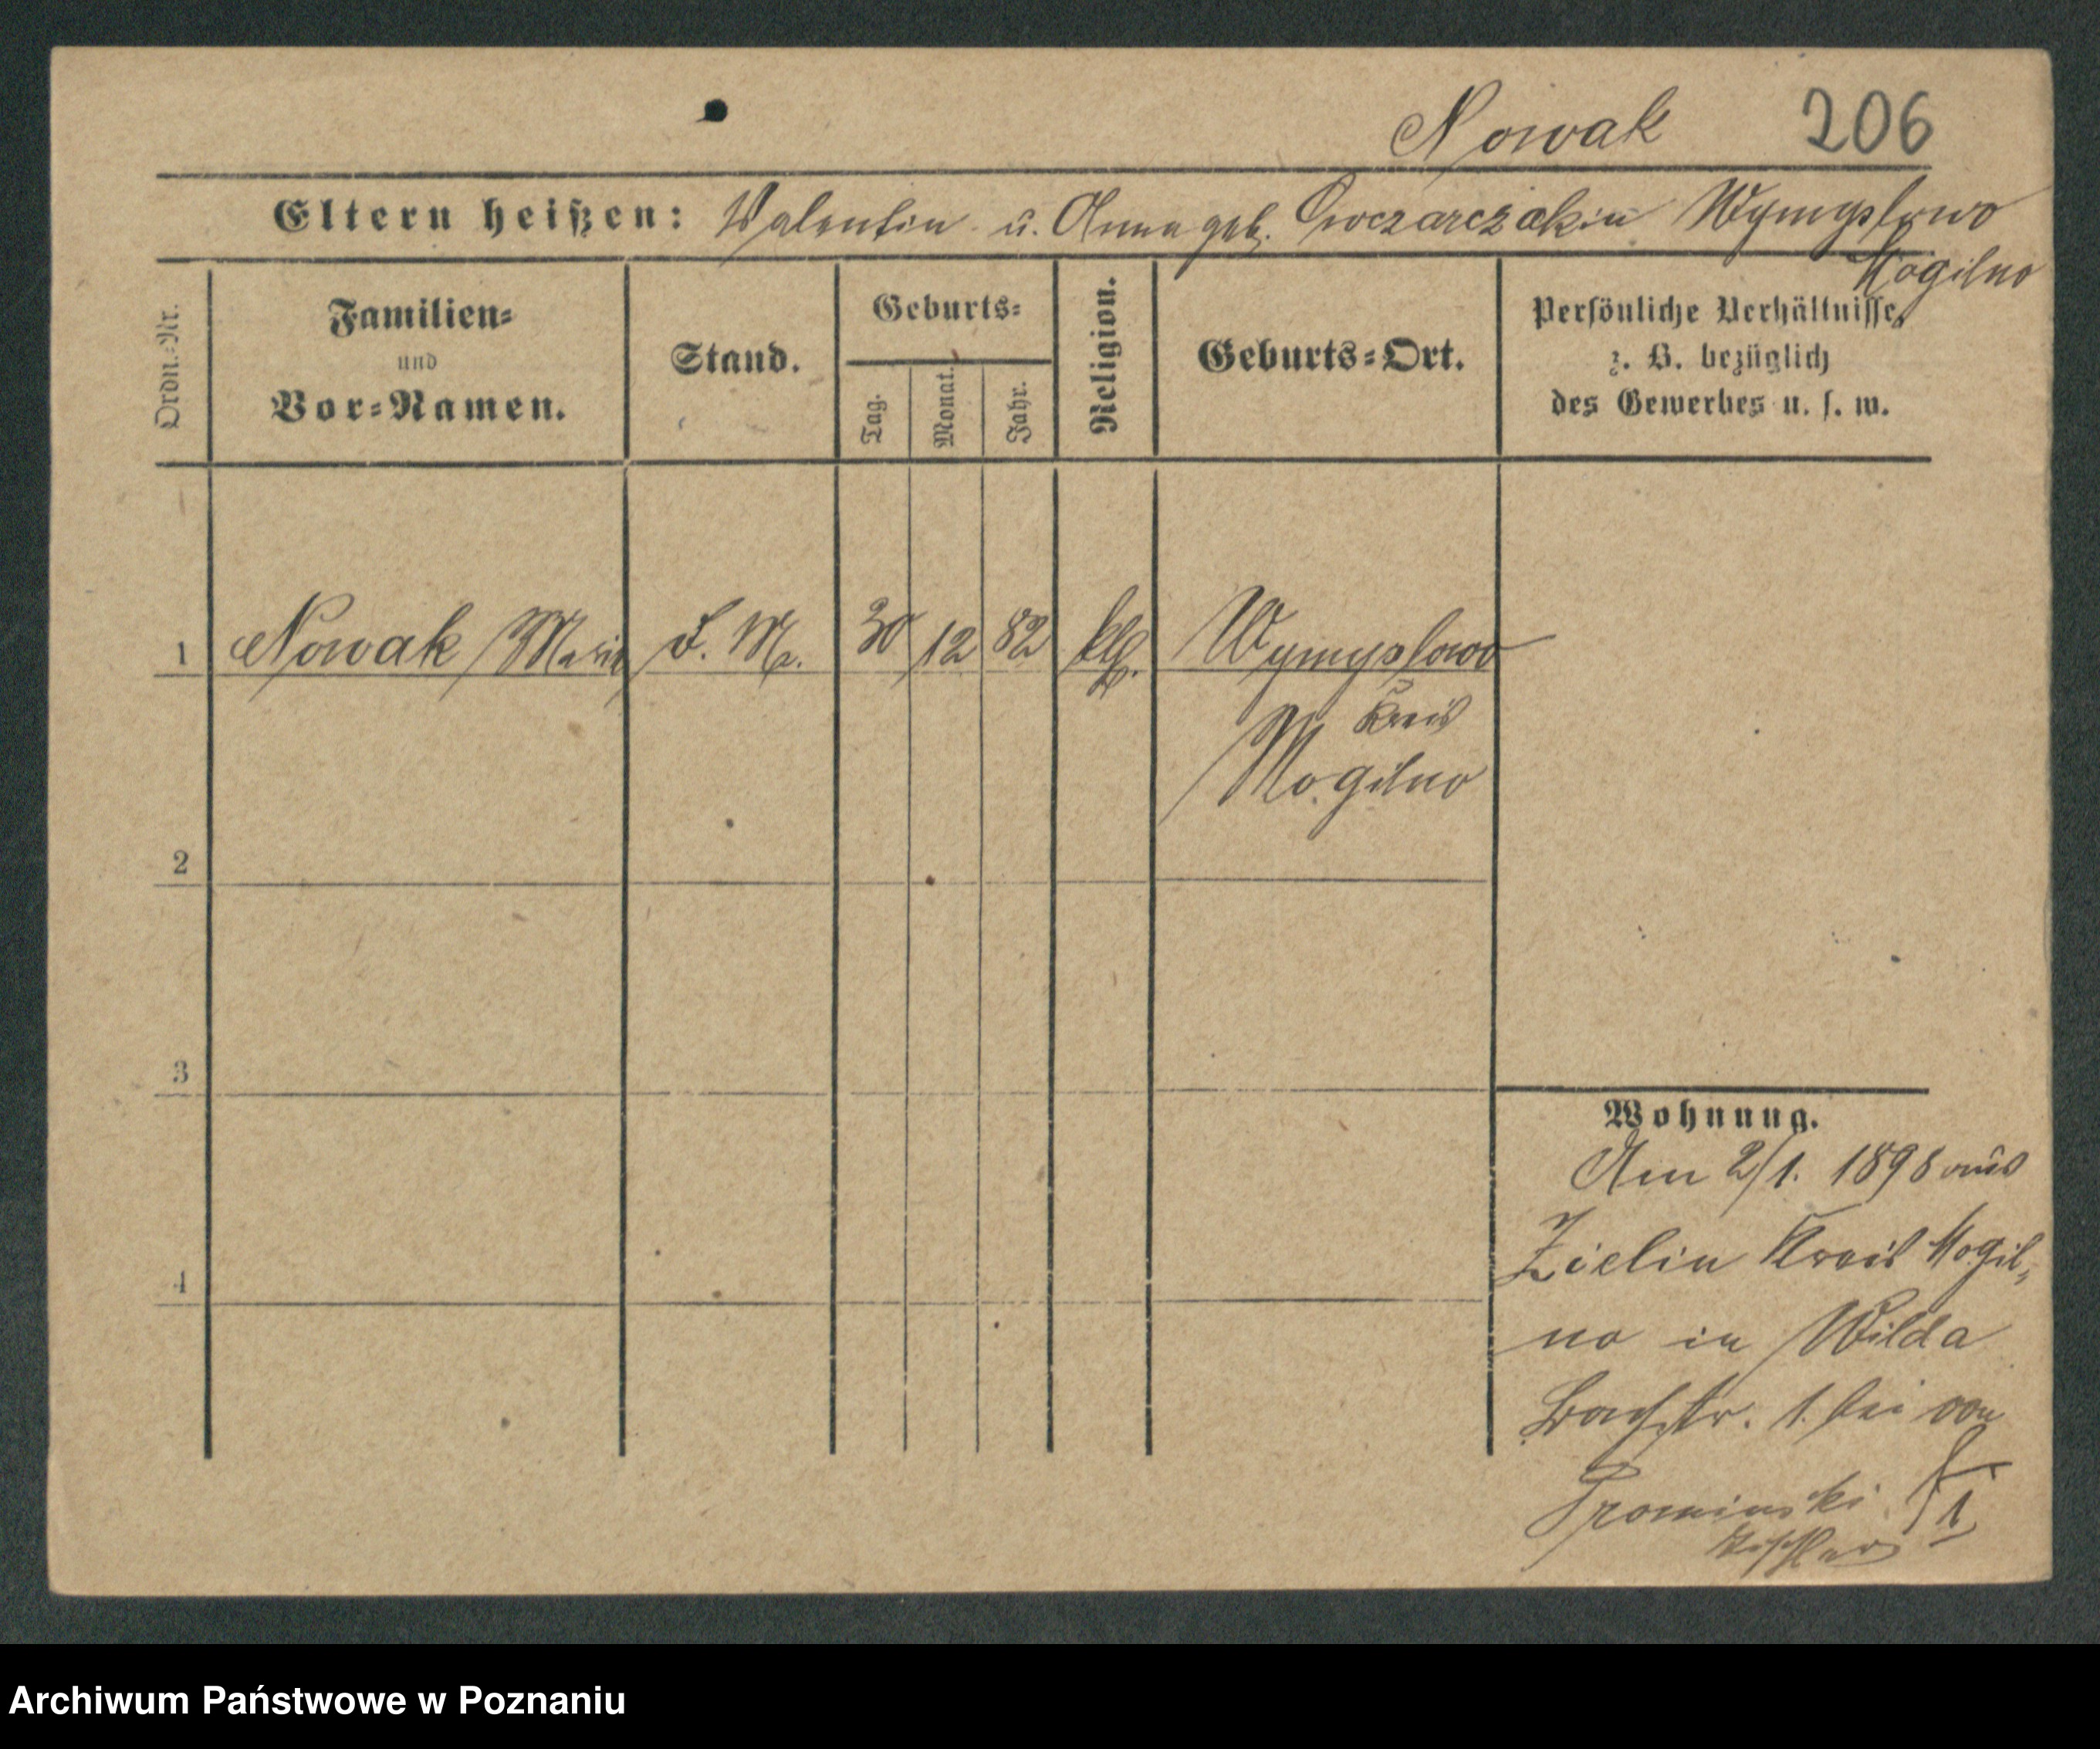 Nowak 206
Eltern heißen: Valentin u. Anna geb. Owczarczak in Wymyslowo
Mogilno
Ordn.-Nr.
Familien-
und
Vor-Namen.
Stand.
Geburts-
Tag.
Monat.
Jahr.
Religion.
Geburts-Ort.
Persönliche Verhältnisse,
z. B. bezüglich
des Gewerbes u. s. w.
1 Nowak Maria D. M. 30 12 82 kth. Wymyslowo
Kreis
Mogilno
2
3
4
Wohnung.
Am 2/1. 1898 aus
Zielin Kreis Mogil-
no in Wilda
1. bei von
1
Archiwum Państwowe w Poznaniu